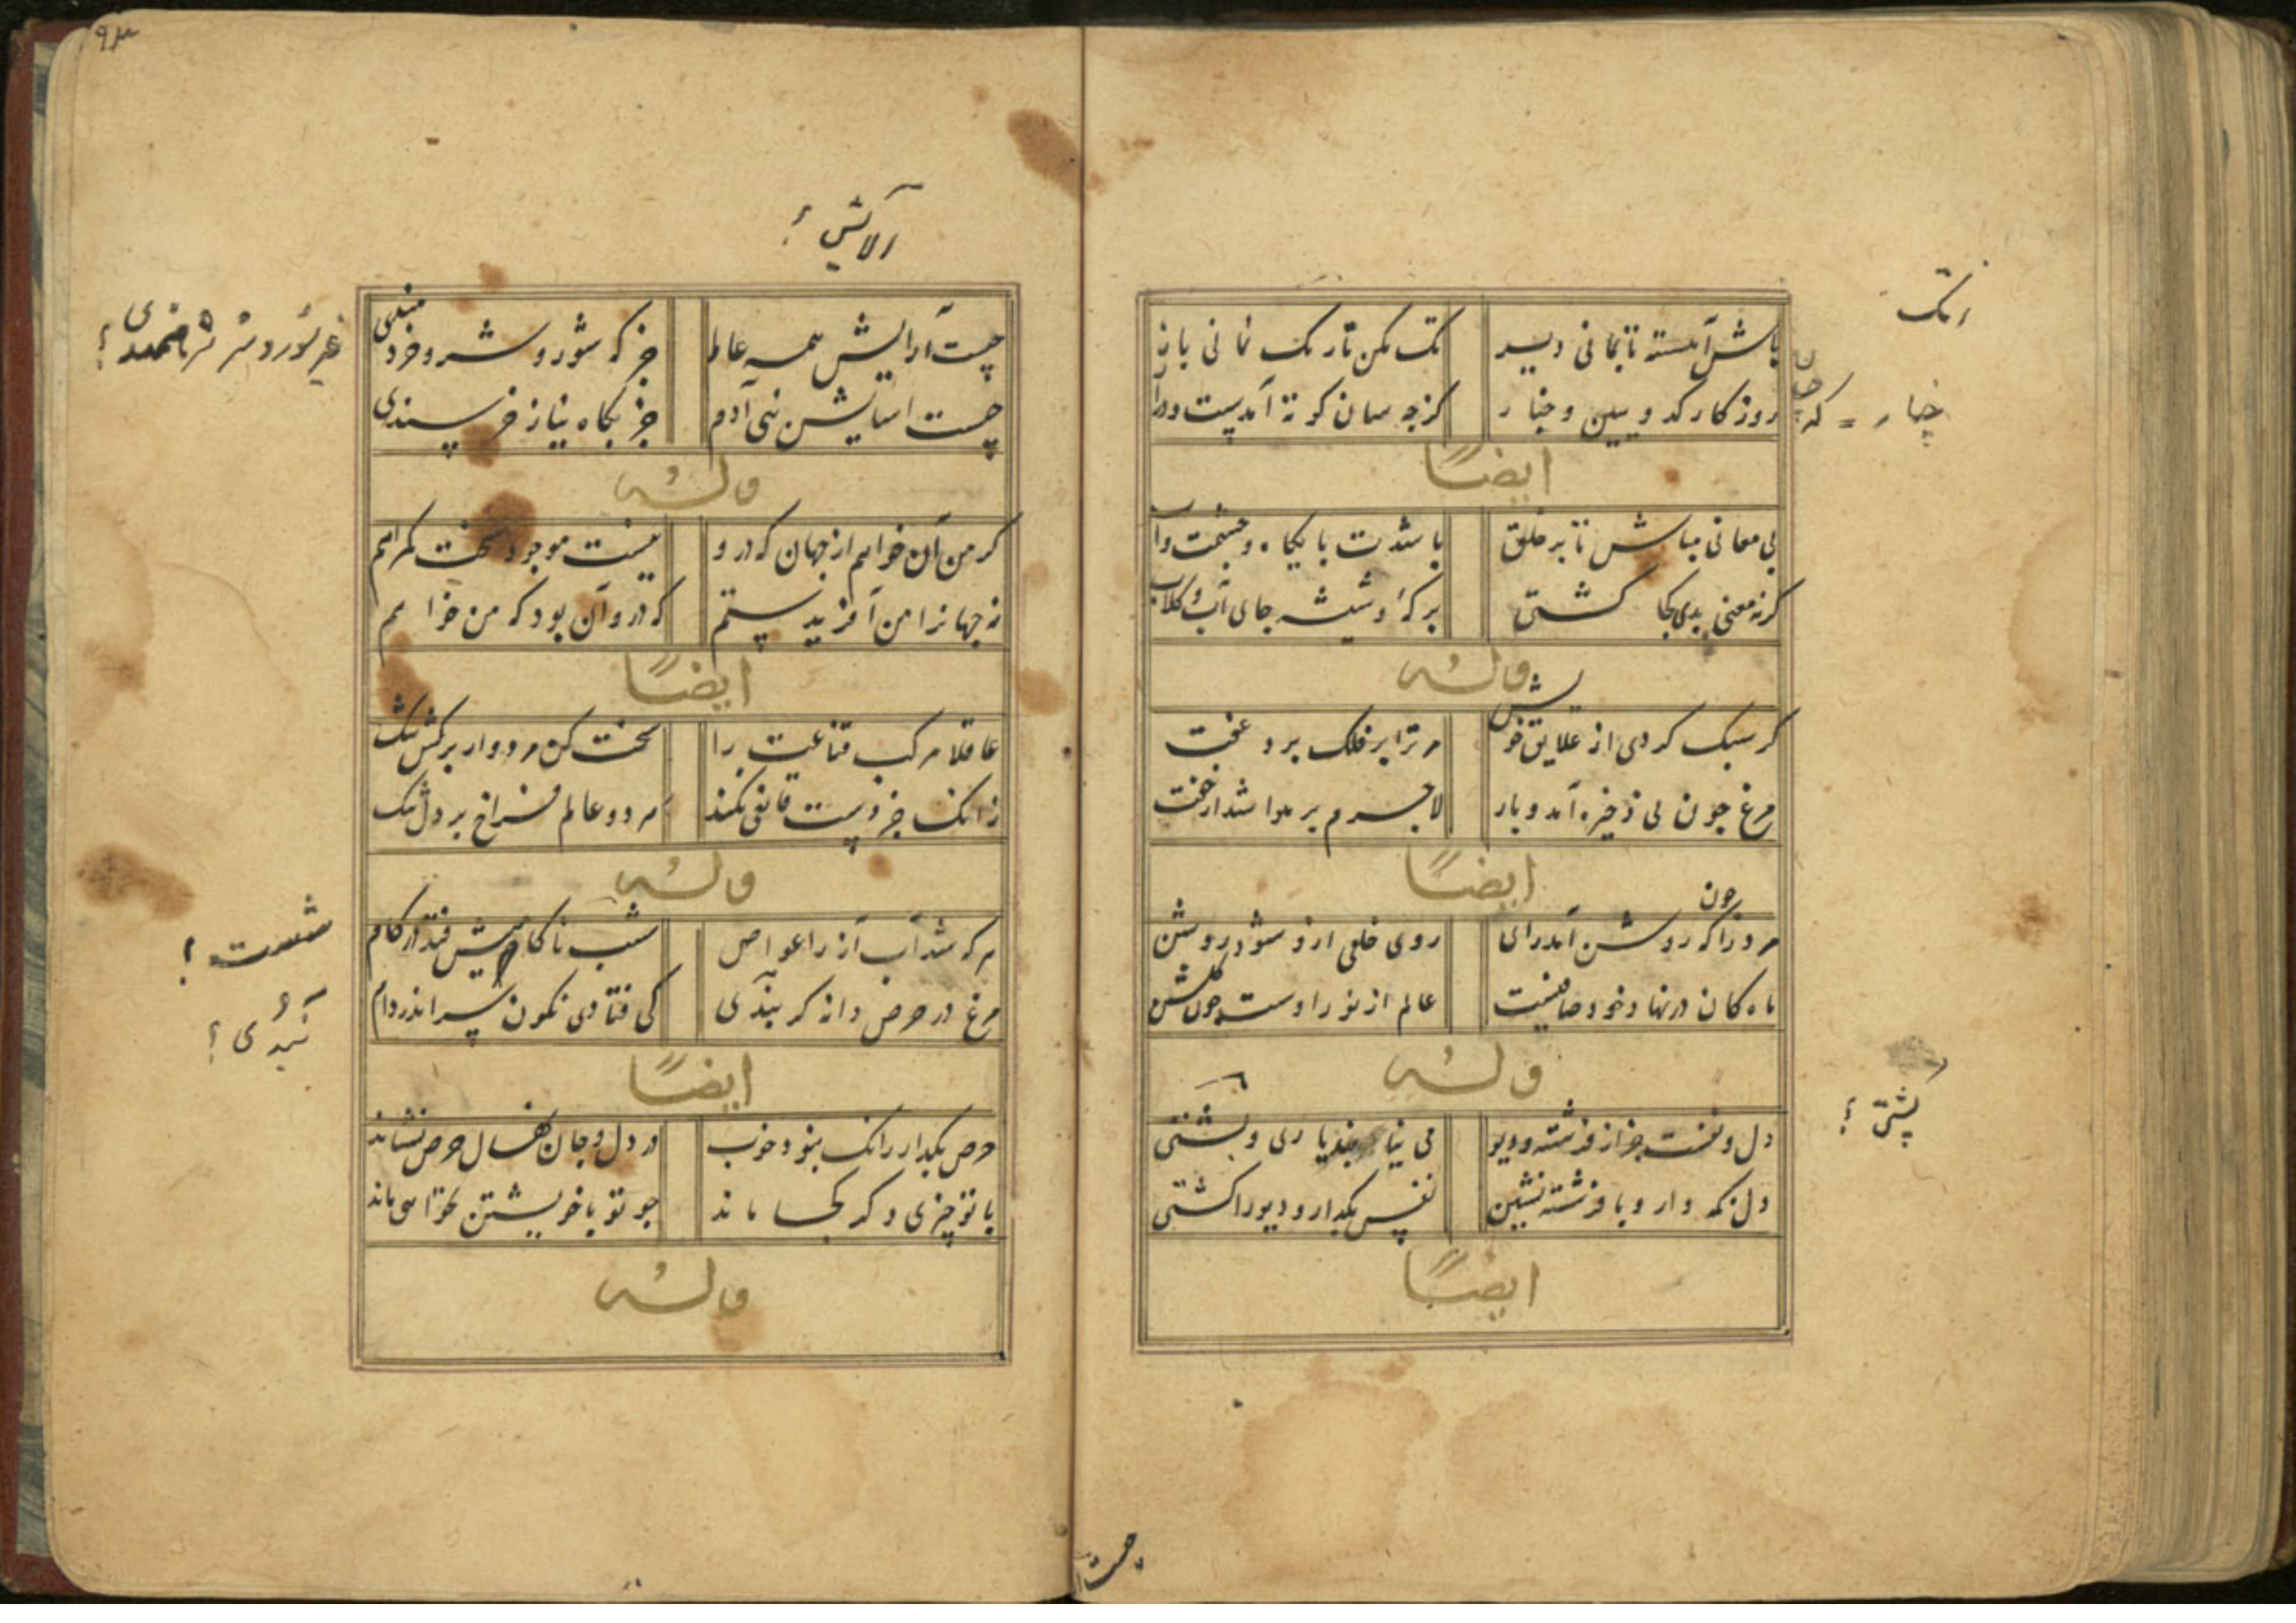 باش آهسته تا بمانی دیر
تک مکن تا ز تک نمانی باز
روزکار کد و ببین و خیار
کز چه سان کوته آمدست و دراز
ایضاً
بی معانی مباش تا بر خلق
باشدت پایکاه و حشمت و آب
کر نه معنی بدی کجا کشتی
برکهٔ و شیشه جای آب و کلاب
وله
کر سبک کردی از علایق خویش
مر ترا بر فلک برد
مرغ چون بی ذخیره آمد و بار
لاجرم بر هوا شد
ایضاً
مرد را که روشن آمد رای
روی خلقی ازو شود روشن
ماه کان در نهاد خود صافیست
عالم از نور اوست چون کلشن
وله
دل و نفست جز از فرشته و دیو
می نیابند یاری و پشتی
دل نکه دار و با فرشته نشین
نفس بکذار و دیو را کشتی
ایضاً
چیست آرایش همه عالم
جز که شور و شر و خردمندی
چیست اسایش بنی آدم
جز بکاه نیاز خرسندی
وله
کر من آن خواهم از جهان که درو
نیست موجود سخت کمراهم
نه جهانرا من آفریدستم
که درو آن بود که من خواهم
ایضاً
عاقلا مرکب قناعت را
سخت کن مردوار برکش تنک
زانک جز دست قانعی نکند
هر دو عالم فراخ بر دل تنک
وله
هر که شد آب آز را غواص
شست ناکامیش فتد در کام
مرغ در حرص دانه کر بندی
کی فتادی نکون سر اندر دام
ایضاً
حرص بکذار زانک نبود خوب
در دل و جان نهال حرص نشاند
با تو چیزی دکر کجا ماند
چو تو با خویشتن نخواهی ماند
وله
آلایش ؟
شست ؟
پشتی ؟